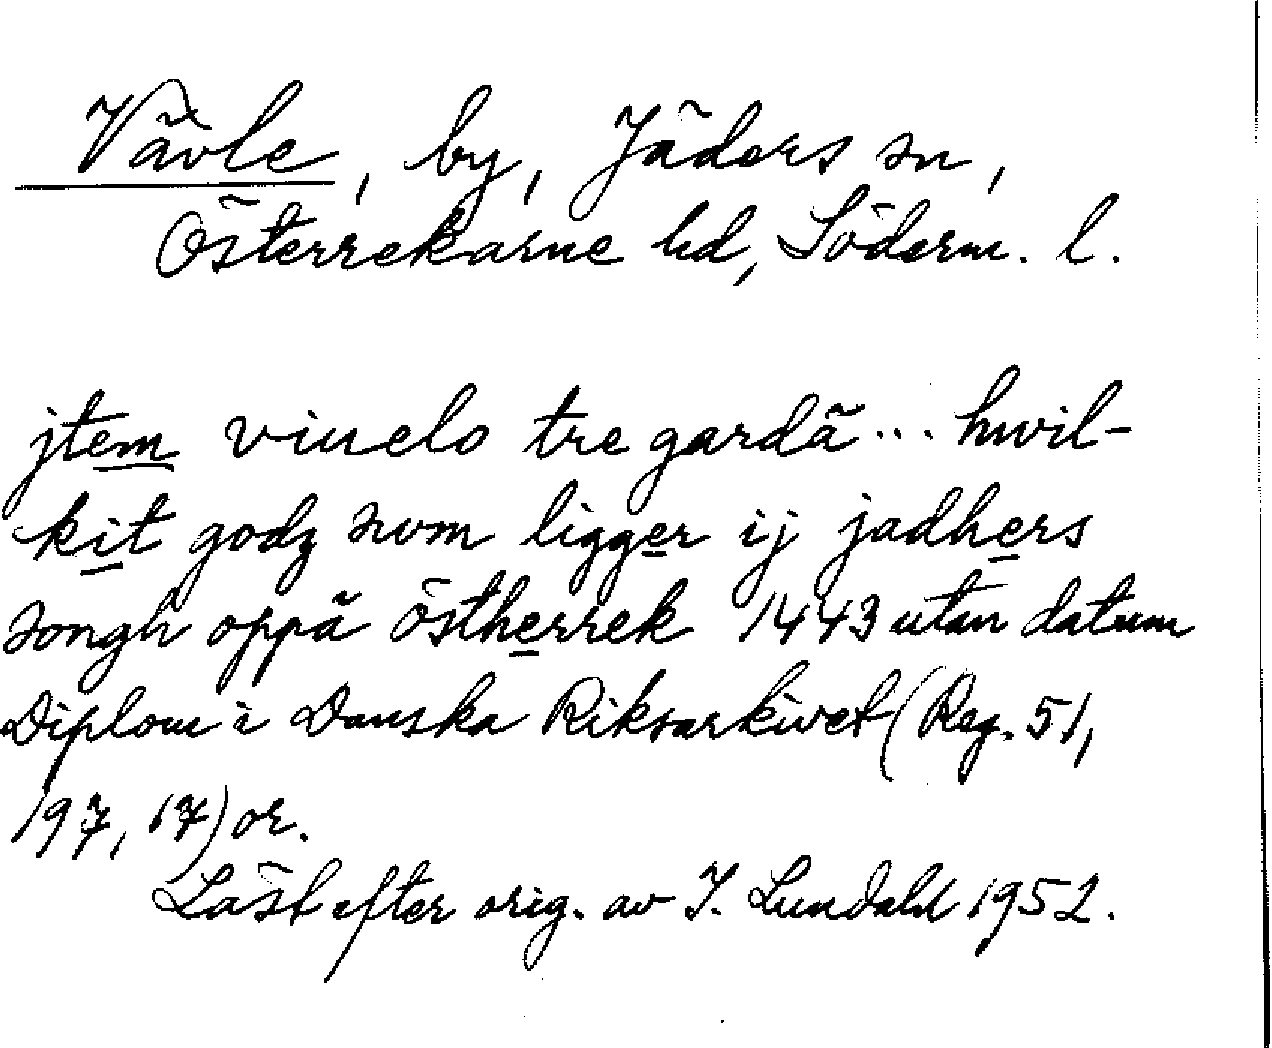 Vävle, by, Jäders sn,
Österrekarne hd, Söderm. l.
jtem viuelo tre gardä... huvil-
kit godz som ligger ij jadhers
songh oppä östherrek 1443 utan datum
Diplom i Danska Riksarkivet (Reg. 51,
197, 17) or.
Läst efter orig. av I. Lundahl 1952.